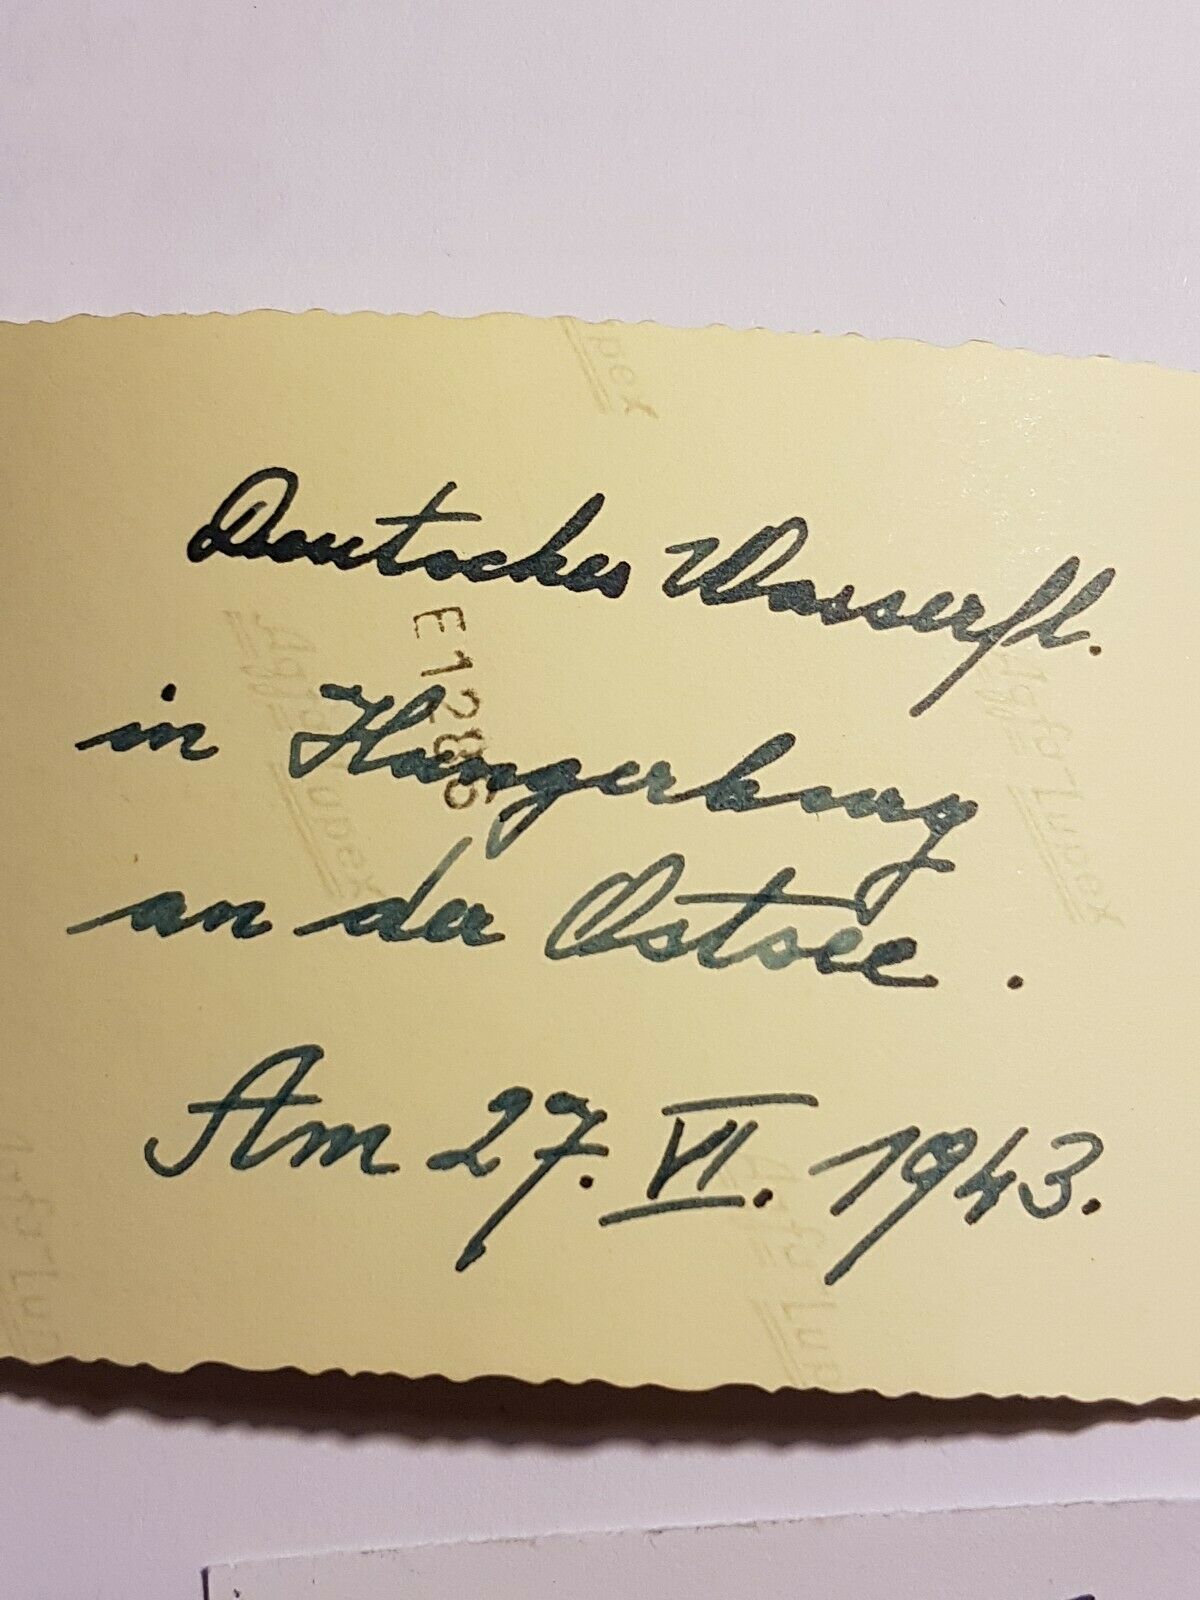 Deutsches Wasserfl.
in Hungerburg
an der Ostsee.
Am 27. VI. 1943.
E1286
pex
Agfa-Lupex
Agfa-Lupex
Agfa-Lup